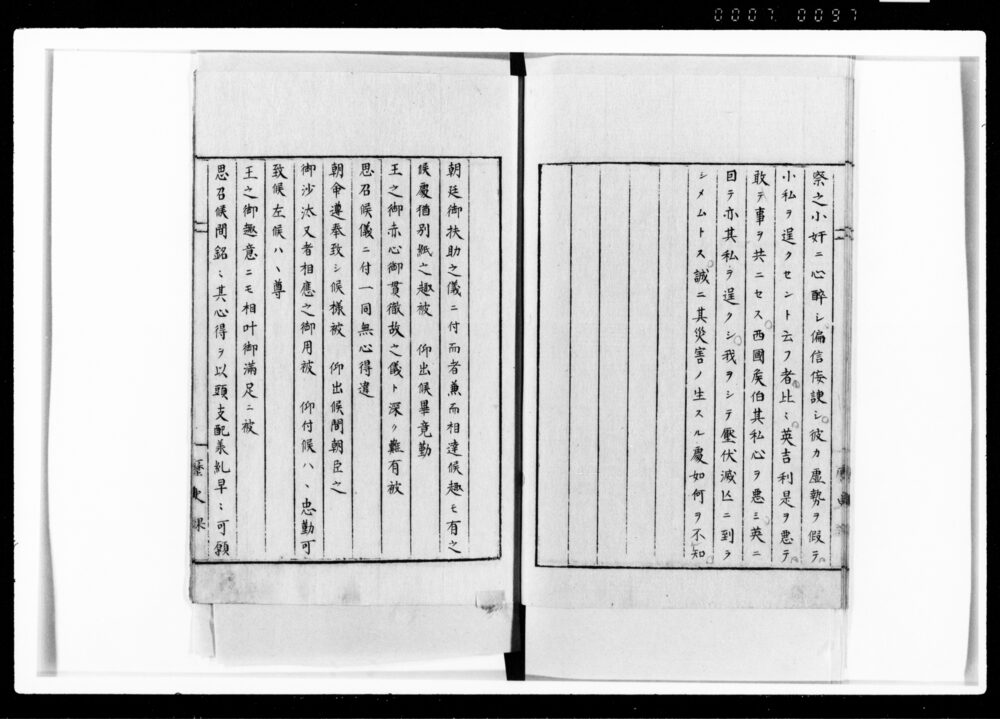 0007 0097
察之小奸ニ心醉シ偏信侫諛シ彼カ虚勢ヲ假テ
小私ヲ逞クセント云フ者比ミ英吉利是ヲ悪テ
敢テ事ヲ共ニセス西國矦伯其私心ヲ悪ミ英ニ
因テ亦其私ヲ逞クシ我ヲシテ壓伏滅亾ニ到ラ
シメムトス誠ニ其災害ノ生スル處如何ヲ不知
朝廷御扶助之儀ニ付而者兼而相達候趣モ有之
候處猶別紙之趣被　仰出候畢竟勤
王之御赤心御貫徹故之儀ト深ク難有被
思召候儀ニ付一同無心得違
朝命遵奉致シ候様被　仰出候間朝臣之
御沙汰又者相應之御用被　仰付候ハヽ忠勤可
致候左候ハヽ尊
王之御趣意ニモ相叶御滿足ニ被
思召候間銘ミ其心得ヲ以頭支配義糺早ミ可願
歴史課